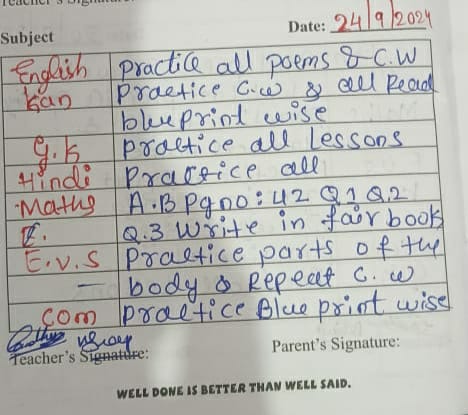 Teacher's Signature
Date: 24/9/2024
Subject
English Practice all poems & C.W
Kan Practice C.w & all Read
blue print wise
G.K Practice all Lessons
Hindi Practice all
Maths A.B Pgno: 42 Q1 Q.2
E. Q.3 Write in fair book
E.V.S Practice parts of the
body & Repeat C.w
Com Practice Blue print wise
Teacher's Signature: Parent's Signature:
WELL DONE IS BETTER THAN WELL SAID.